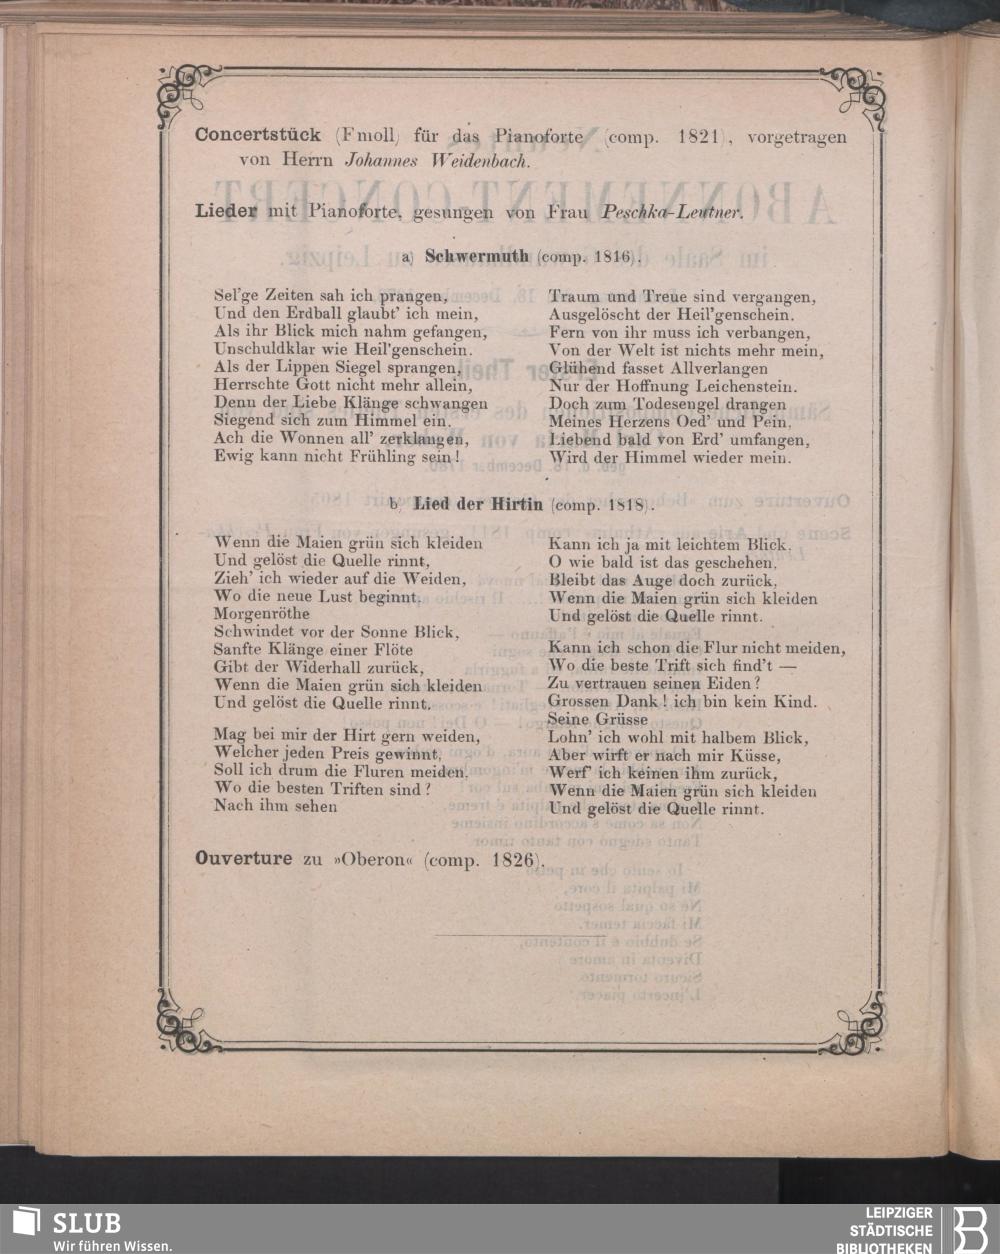 Concertstück (Fmoll) für das Pianoforte (comp. 1821), vorgetragen
von Herrn Johannes Weidenbach.
Lieder mit Pianoforte, gesungen von Frau Peschka-Leutner.
a) Schwermuth (comp. 1816).
Sel'ge Zeiten sah ich prangen,
Und den Erdball glaubt' ich mein,
Als ihr Blick mich nahm gefangen,
Unschuldklar wie Heil'genschein.
Als der Lippen Siegel sprangen,
Herrschte Gott nicht mehr allein,
Denn der Liebe Klänge schwangen
Siegend sich zum Himmel ein.
Ach die Wonnen all' zerklangen,
Ewig kann nicht Frühling sein!
Traum und Treue sind vergangen,
Ausgelöscht der Heil'genschein.
Fern von ihr muss ich verbangen,
Von der Welt ist nichts mehr mein,
Glühend fasset Allverlangen
Nur der Hoffnung Leichenstein.
Doch zum Todesengel drangen
Meines Herzens Oed' und Pein,
Liebend bald von Erd' umfangen,
Wird der Himmel wieder mein.
b) Lied der Hirtin (comp. 1818).
Wenn die Maien grün sich kleiden
Und gelöst die Quelle rinnt,
Zieh' ich wieder auf die Weiden,
Wo die neue Lust beginnt.
Morgenröthe
Schwindet vor der Sonne Blick,
Sanfte Klänge einer Flöte
Gibt der Widerhall zurück,
Wenn die Maien grün sich kleiden
Und gelöst die Quelle rinnt.
Mag bei mir der Hirt gern weiden,
Welcher jeden Preis gewinnt,
Soll ich drum die Fluren meiden,
Wo die besten Triften sind?
Nach ihm sehen
Kann ich ja mit leichtem Blick,
O wie bald ist das geschehen,
Bleibt das Auge doch zurück,
Wenn die Maien grün sich kleiden
Und gelöst die Quelle rinnt.
Kann ich schon die Flur nicht meiden,
Wo die beste Trift sich find't —
Zu vertrauen seinen Eiden?
Grossen Dank! ich bin kein Kind.
Seine Grüsse
Lohn' ich wohl mit halbem Blick,
Aber wirft er nach mir Küsse,
Werf' ich keinen ihm zurück,
Wenn die Maien grün sich kleiden
Und gelöst die Quelle rinnt.
Ouverture zu »Oberon« (comp. 1826).
SLUB
Wir führen Wissen.
LEIPZIGER
STÄDTISCHE
BIBLIOTHEKEN